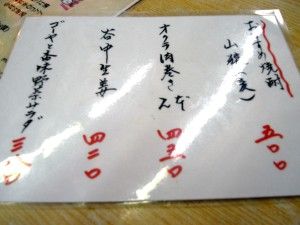 おすすめ焼酎
山猿(麦)
五〇〇
オクラ肉巻き 2本
四五〇
谷中生姜
四二〇
ゴーヤと香味野菜サラダ
三八〇